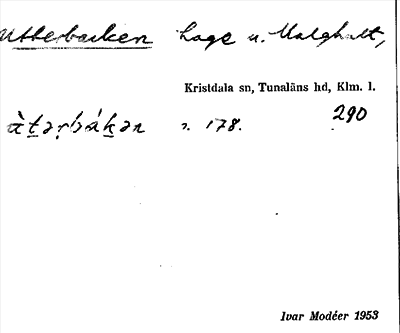 Utterbacken hage u. Malghult,
Kristdala sn, Tunaläns hd, Klm. l.
290
àt̲ərbák̲ən s. 178.
Ivar Modéer 1953